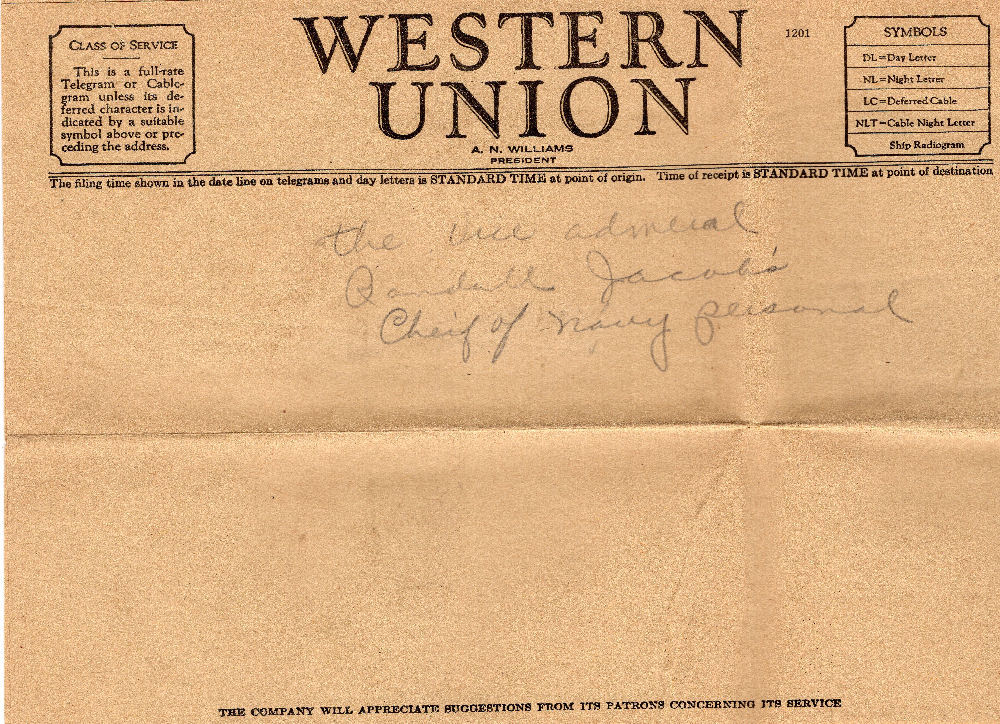 CLASS OF SERVICE
This is a full-rate
Telegram or Cable-
gram unless its de-
ferred character is in-
dicated by a suitable
symbol above or pre-
ceding the address.
WESTERN
UNION
A. N. WILLIAMS
PRESIDENT
1201
SYMBOLS
DL=Day Letter
NL=Night Letter
LC=Deferred Cable
NLT=Cable Night Letter
Ship Radiogram
The filing time shown in the date line on telegrams and day letters is STANDARD TIME at point of origin. Time of receipt is STANDARD TIME at point of destination
the vice admeral
Randall Jacobs
Cheif of navy personal
THE COMPANY WILL APPRECIATE SUGGESTIONS FROM ITS PATRONS CONCERNING ITS SERVICE